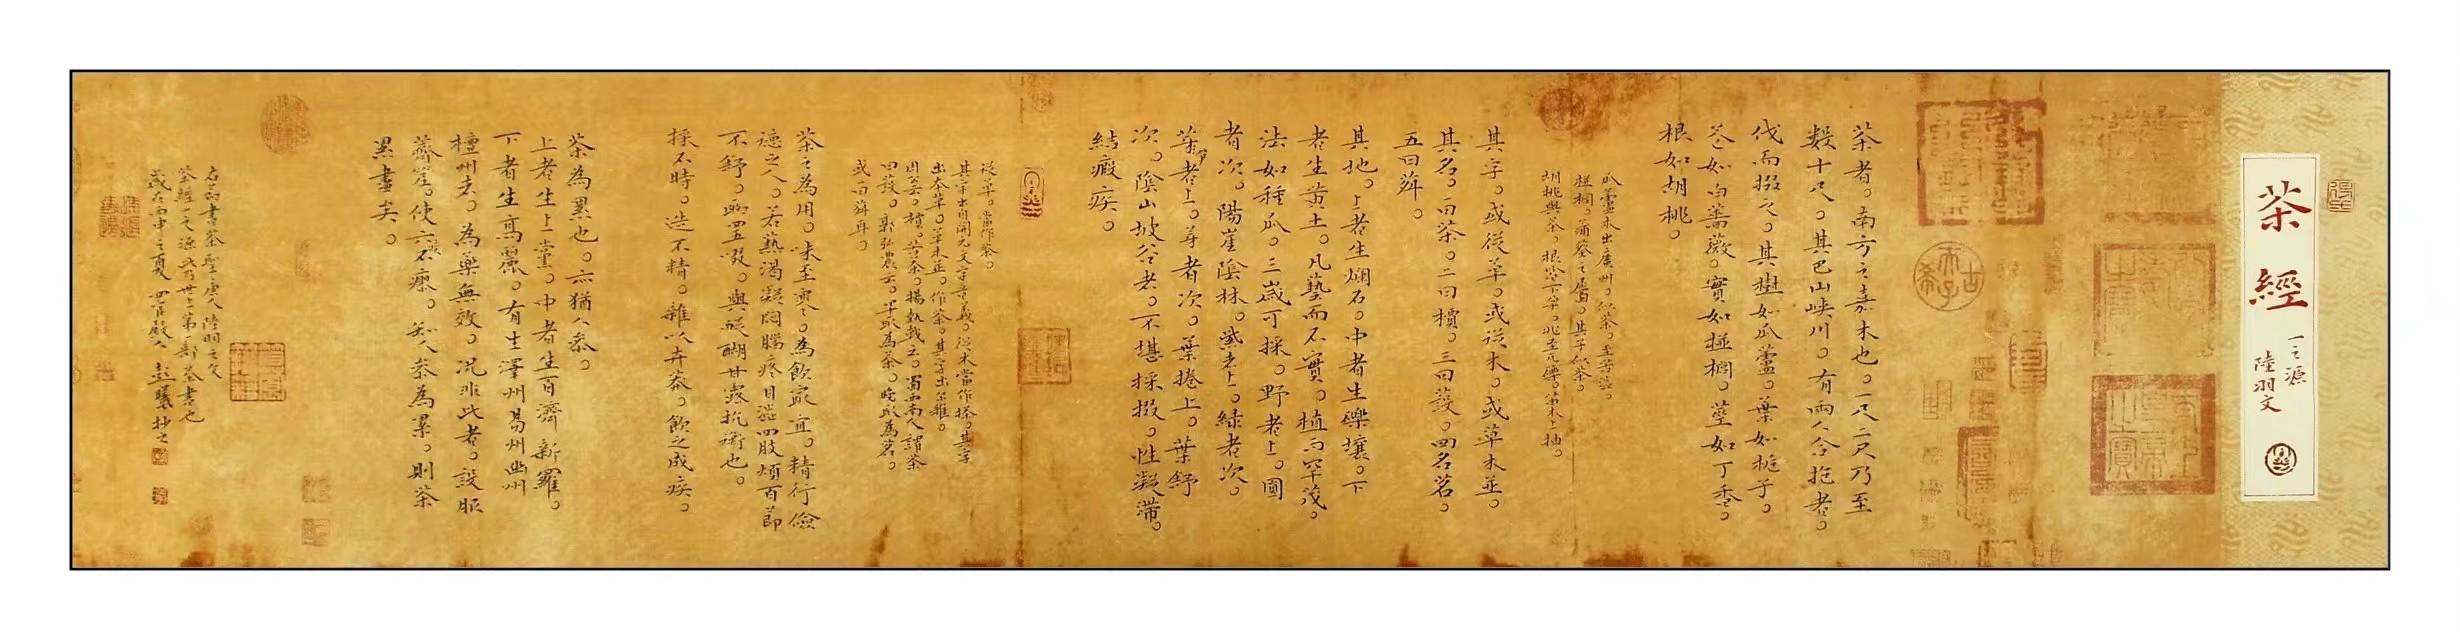 茶經
一之源
陸羽文
茶者。南方之嘉木也。一尺二尺乃至
數十尺。其巴山峽川。有兩人合抱者。
伐而掇之。其樹如瓜蘆。葉如梔子。
花如白薔薇。實如栟櫚。莖如丁香。
根如胡桃。
瓜蘆木出廣州。似茶。至苦澀。
栟櫚。蒲葵之屬。其子似茶。
胡桃與茶。根皆下孕。兆至瓦礫。苗木上抽。
其字。或從草。或從木。或草木並。
其名。一曰茶。二曰檟。三曰蔎。四名茗。
五曰荈。
其地。上者生爛石。中者生礫壤。下
者生黃土。凡藝而不實。植而罕茂。
法如種瓜。三歲可採。野者上。園
者次。陽崖陰林。紫者上。綠者次。
筍者上。芽者次。葉捲上。葉舒
次。陰山坡谷者。不堪採掇。性凝滯。
結瘕疾。
從草。當作茶。
其字出自開元文字音義。從木當作搽。其字
出本草。草木並。作荼。其字出爾雅。
周公云。檟。苦荼。揚執戟云。蜀西南人謂茶
曰蔎。郭弘農云。早取為茶。晚取為茗。
或一曰荈耳。
茶之為用。味至寒。為飲最宜。精行儉
德之人。若熱渴凝悶腦疼目澀四肢煩百節
不舒。聊四五啜。與醍醐甘露抗衡也。
採不時。造不精。雜以卉莽。飲之成疾。
茶為累也。亦猶人參。
上者生上黨。中者生百濟新羅。
下者生高麗。有生澤州易州幽州
檀州者。為藥無效。況非此者。設服
薺苨。使六不瘳。知人參為累。則茶
累盡矣。
右品書茶聖唐人陸羽之文
茶經一之源此乃世上第一部茶書也